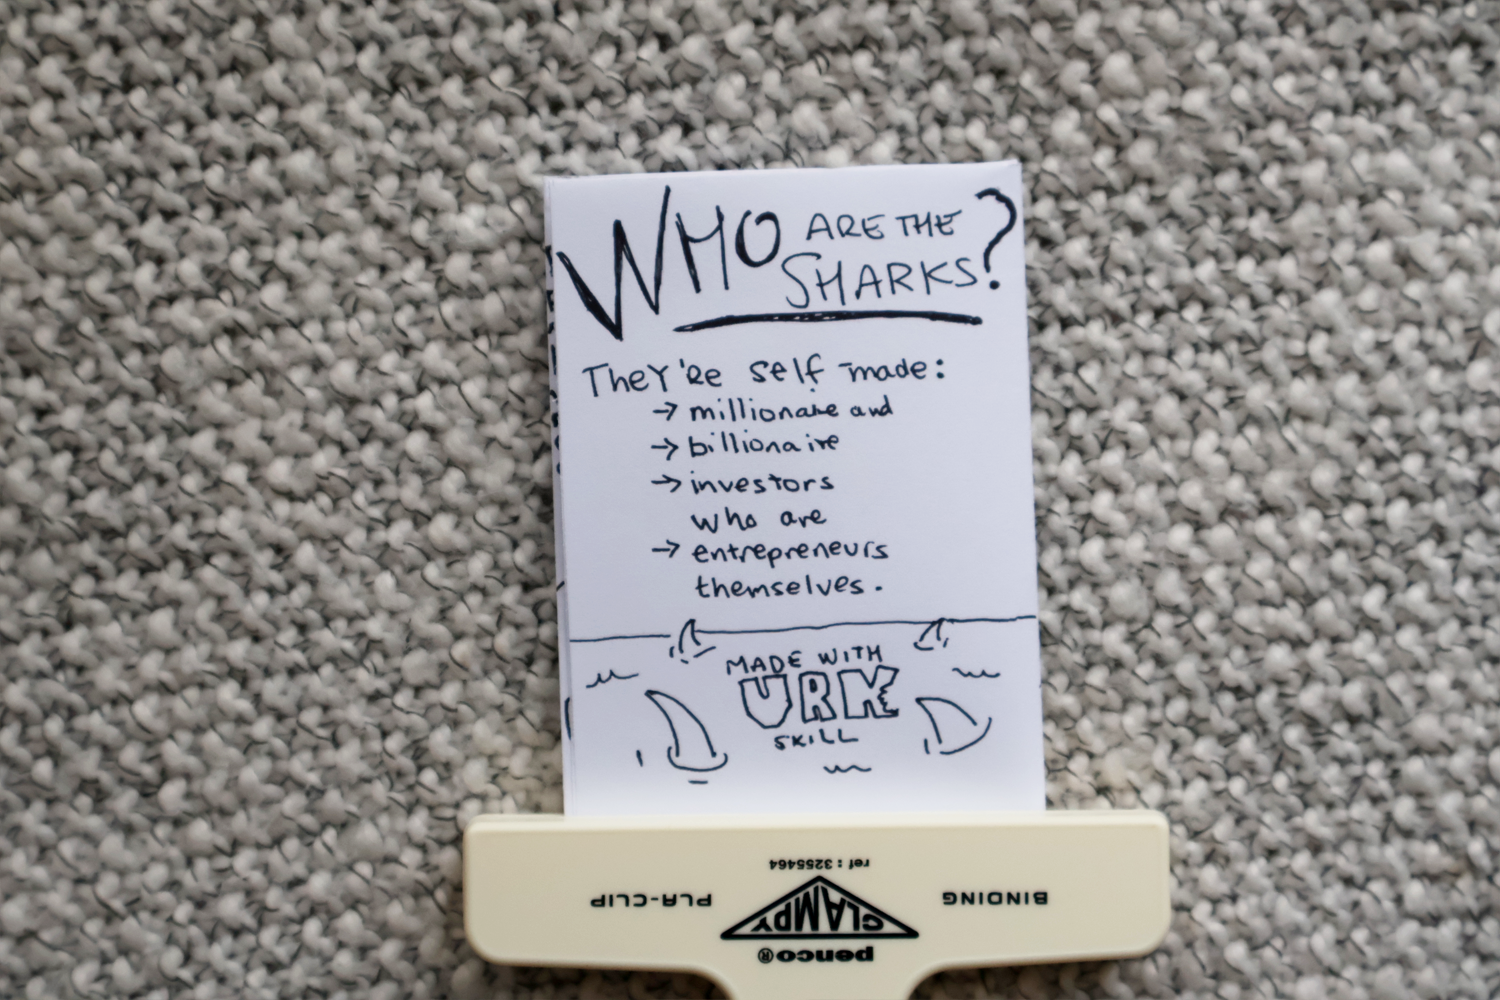 WHO ARE THE SHARKS?
They're self made:
→ millionaire and
→ billionaire
→ investors
who are
→ entrepreneurs
themselves.
MADE WITH
URK
SKILL
ref : 3255464
PLA-CLIP
CLAMPY
BINDING
penco®